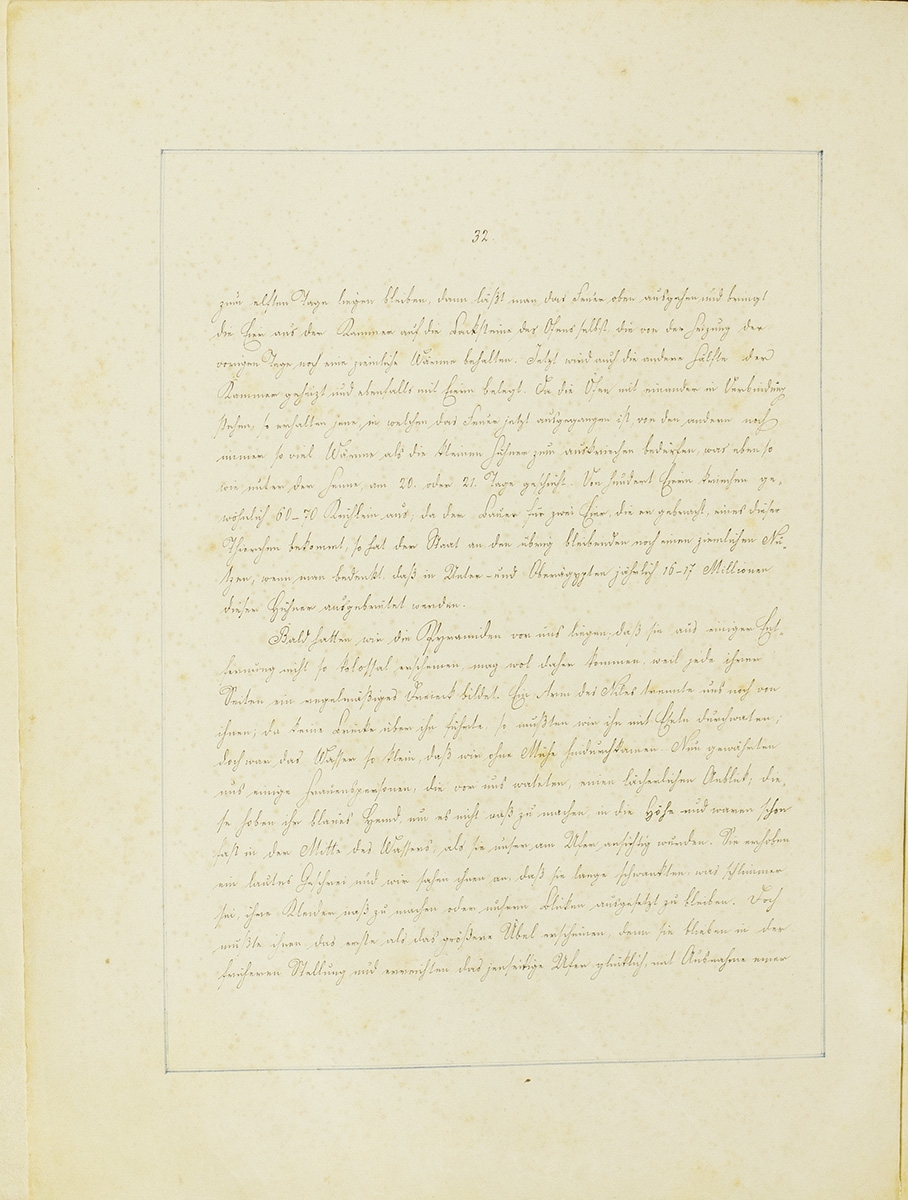 32.
zum elften Tage liegen bleiben, dann läßt man das Feuer oben ausgehen und bringt
die Eier aus der Kammer auf die Backsteine des Ofens selbst, die von der Heizung der
vorigen Tage noch eine ziemliche Wärme behalten. Jetzt wird auch die andere Hälfte der
Kammer geheizt und ebenfalls mit Eiern belegt. Da die Öfen mit einander in Verbindung
stehen, so erhalten jene, in welchen das Feuer jetzt ausgegangen ist, von den andern noch
immer so viel Wärme als die kleinen Hühner zum auskriechen bedürfen, was eben so
wie unter der Henne am 20. oder 21. Tage geschieht. Von hundert Eiern kriechen ge-
wöhnlich 60-70 Küchlein aus; da der Bauer für zwei Eier, die er gebracht, eines dieser
Thierchen bekommt, so hat der Staat an den übrig bleibenden noch einen ziemlichen Nu-
tzen, wenn man bedenkt, daß in Unter- und Oberägypten jährlich 16-17 Millionen
dieser Hühner ausgebrütet werden.
Bald hatten wir die Pyramiden vor uns liegen; daß sie aus einiger Ent-
fernung nicht so kolossal erscheinen, mag wol daher kommen, weil jede ihrer
Seiten ein regelmäßiges Dreieck bildet. Ein Arm des Niles trennte uns noch von
ihnen; da keine Brücke über ihn führte, so mußten wir ihn mit Eseln durchwaten;
doch war das Wasser so klein, daß wir ohne Mühe hindurchkamen. Nun gewährten
uns einige Frauenspersonen, die vor uns wateten, einen lächerlichen Anblick; die-
se hoben ihr blaues Hemd, um es nicht naß zu machen, in die Höhe und waren schon
fast in der Mitte des Wassers, als sie unser am Ufer ansichtig wurden. Sie erhoben
ein lautes Geschrei und wir sahen ihnen an, daß sie lange schwankten, was schlimmer
sei, ihre Kleider naß zu machen oder unsern Blicken ausgesetzt zu bleiben. Doch
mußte ihnen das erste als das größere Übel erscheinen, denn sie blieben in der
früheren Stellung und erreichten das jenseitige Ufer glücklich, mit Ausnahme einer